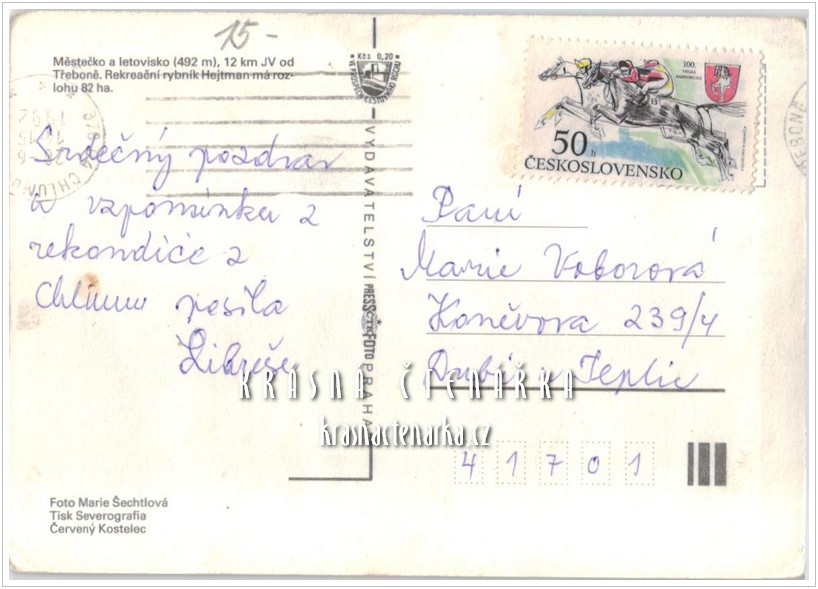 15-
Městečko a letovisko (492 m), 12 km JV od
Třeboně. Rekreační rybník Hejtman má roz-
lohu 82 ha.
Srdečný pozdrav
a vzpomínku z
rekondice z
Chlumu posílá
Libuše
Foto Marie Šechtlová
Tisk Severografia
Červený Kostelec
Kčs 0,20
VE PROSPĚCH CESTOVNÍHO RUCHU
VYDAVATELSTVÍ PRESSFOTO PRAHA
ČTK
100.
VELKÁ
PARDUBICKÁ
50 h
ČESKOSLOVENSKO
Paní
Marie Voborová
Koněvova 239/4
Dubí u Teplic
41701
KRÁSNÁ ČTENÁŘKA
krasnactenarka.cz